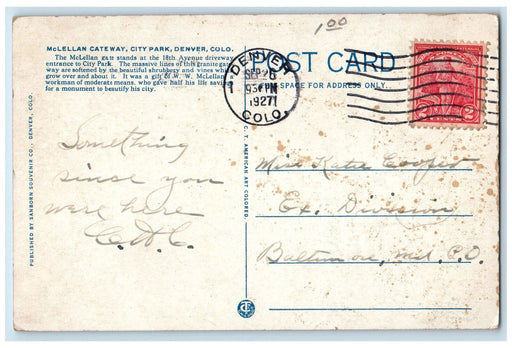 1 00
McLELLAN GATEWAY, CITY PARK, DENVER, COLO.
The McLellan gate stands at the 18th Avenue driveway
entrance to City Park. The massive lines of this granite gate
way are softened by the beautiful shrubbery and vines which
grow over and about it. It was a gift of W. W. McLellan
workman of moderate means, who gave half his life savings
for a monument to beautify his city.
POST CARD
SPACE FOR ADDRESS ONLY.
DENVER
SEP 26
930 PM
1927
COLO.
2 2
Something
since you
were here
C.A.C.
Miss Katie Cooper
Ex. Division
Baltimore, Md. P.O.
PUBLISHED BY SANBORN SOUVENIR CO., DENVER, COLO.
C. T. AMERICAN ART COLORED.